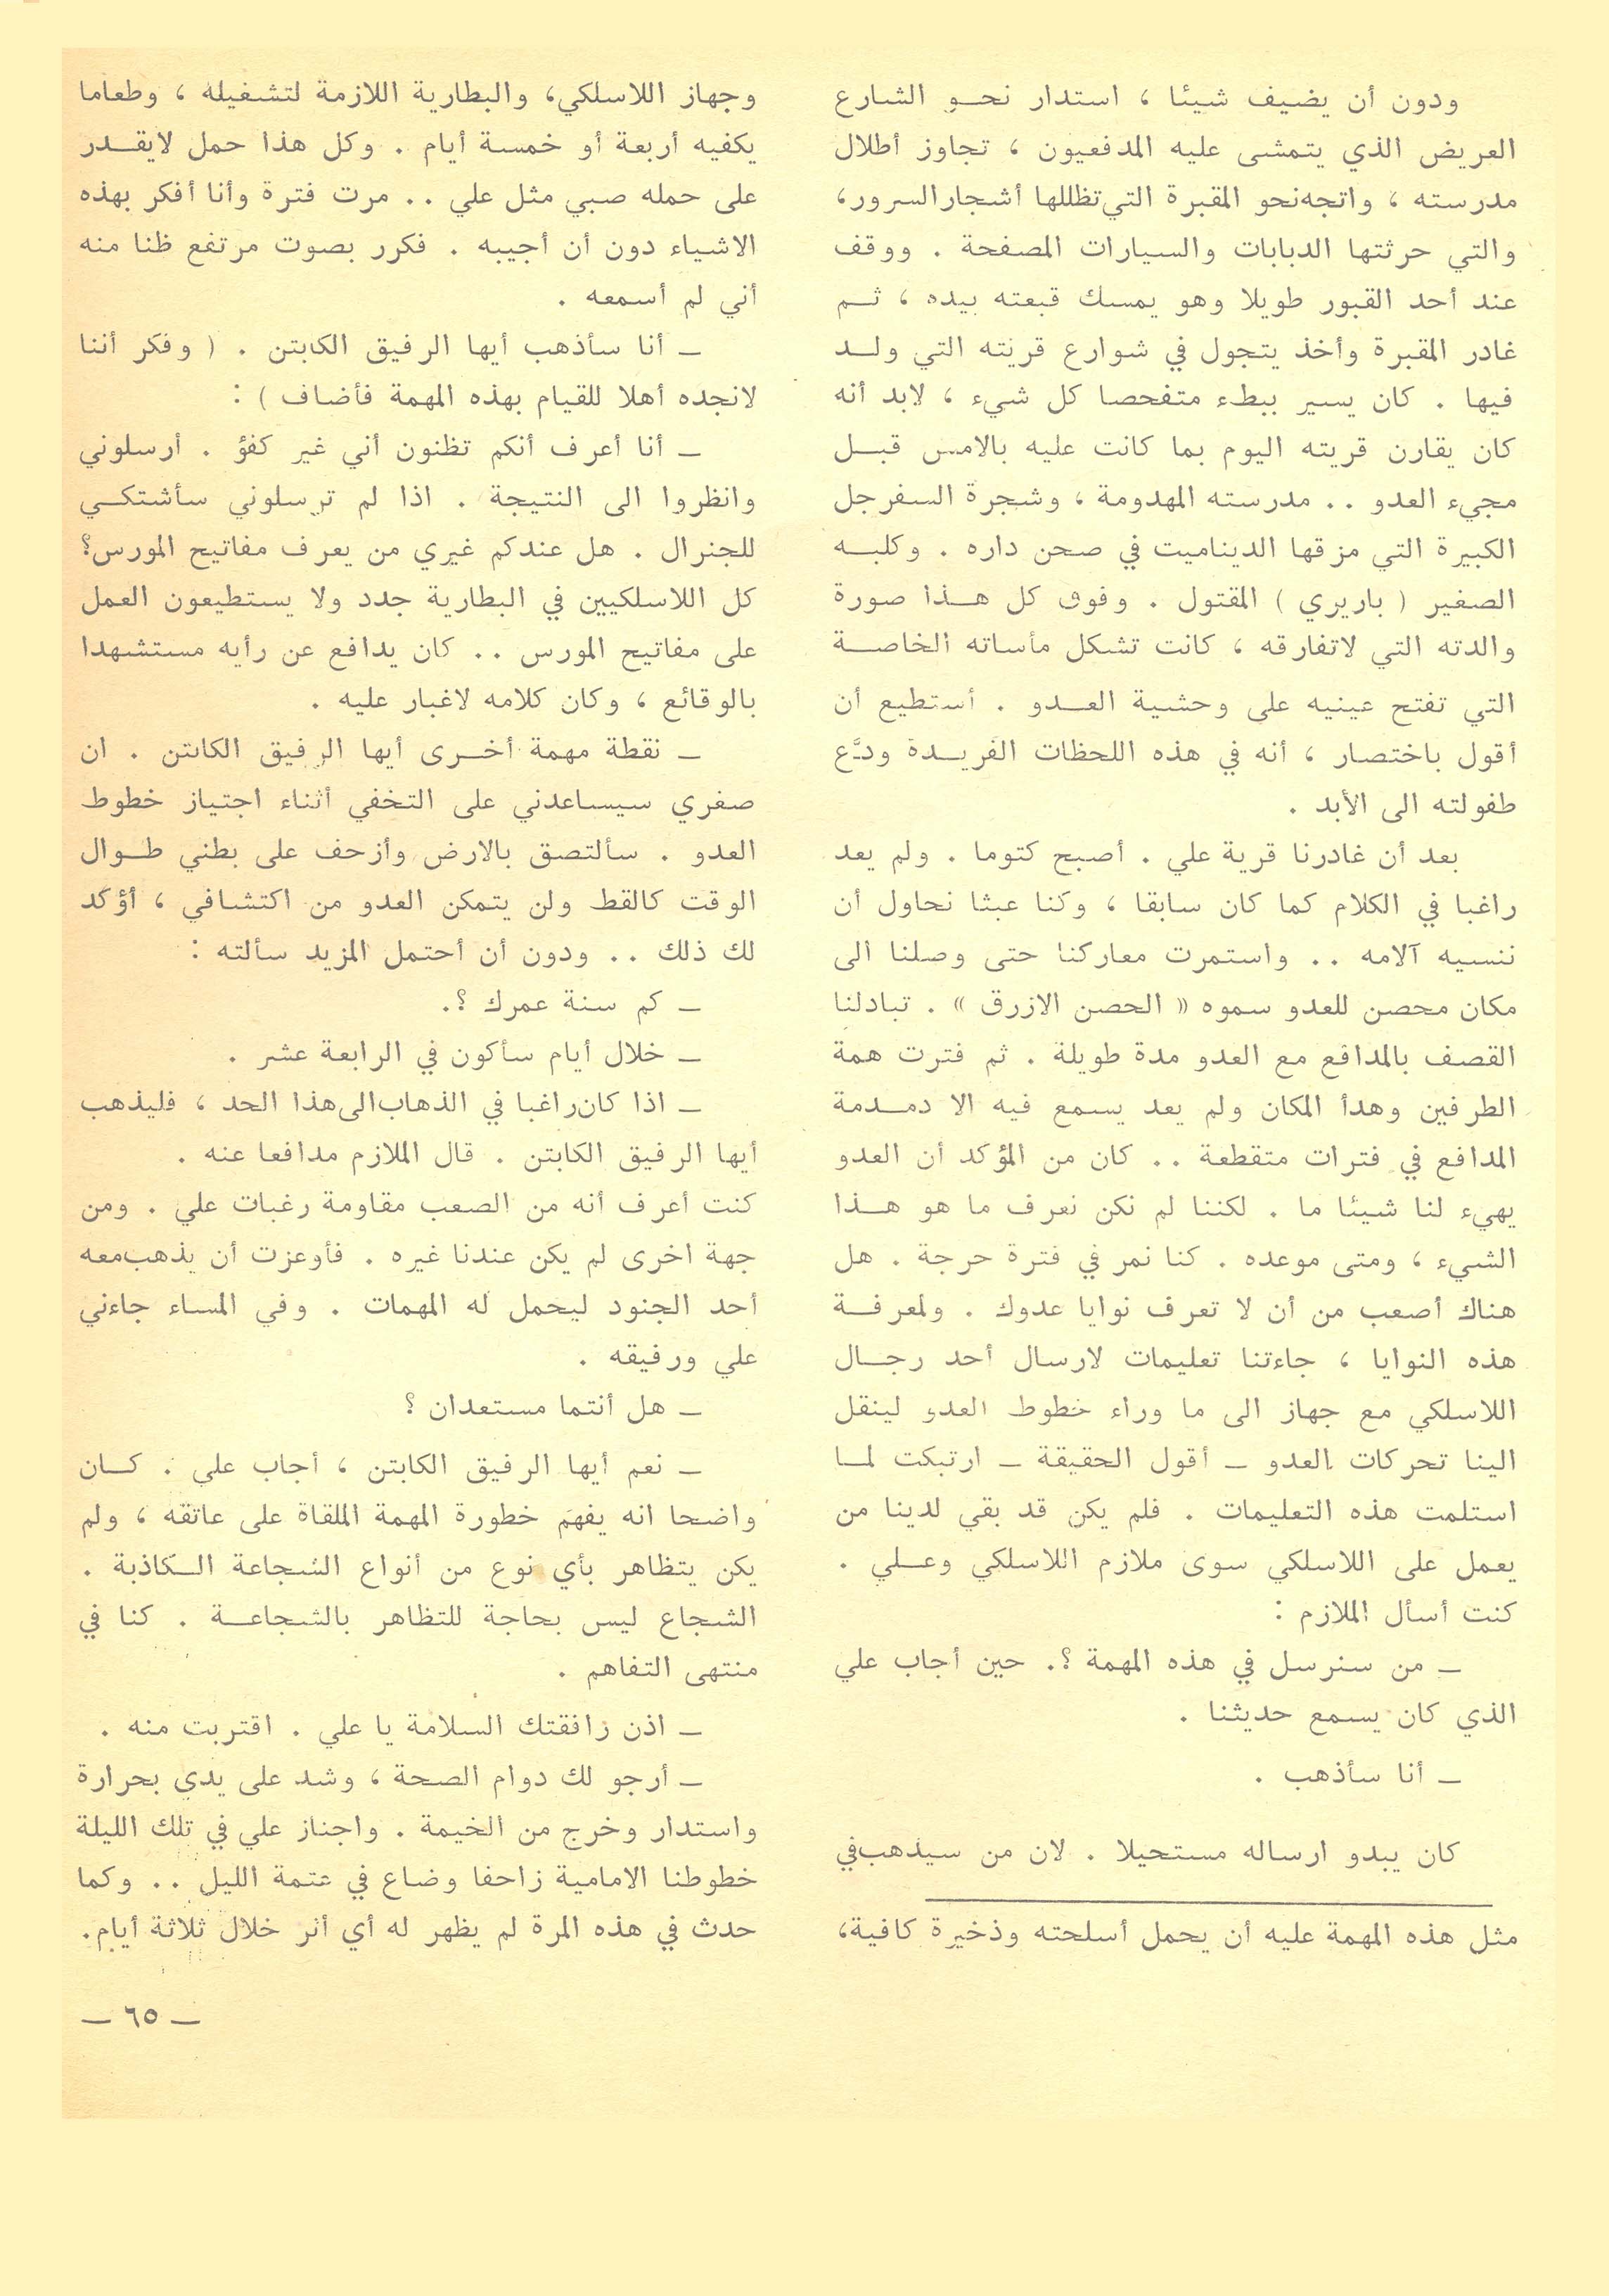 ودون أن يضيف شيئا ، استدار نحو الشارع
العريض الذي يتمشى عليه المدفعيون ، تجاوز أطلال
مدرسته ، واتجه نحو المقبرة التي تظللها أشجار السرور،
والتي حرثتها الدبابات والسيارات المصفحة . ووقف
عند أحد القبور طويلا وهو يمسك قبعته بيده ، ثم
غادر المقبرة وأخذ يتجول في شوارع قريته التي ولد
فيها . كان يسير ببطء متفحصا كل شيء ، لابد أنه
كان يقارن قريته اليوم بما كانت عليه بالامس قبل
مجيء العدو .. مدرسته المهدومة ، وشجرة السفرجل
الكبيرة التي مزقها الديناميت في صحن داره . وكلبه
الصغير ( باريري ) المقتول . وفوق كل هذا صورة
والدته التي لاتفارقه ، كانت تشكل مأساته الخاصة
التي تفتح عينيه على وحشية العدو . أستطيع أن
أقول باختصار ، أنه في هذه اللحظات الفريدة ودَّع
طفولته الى الأبد .
بعد أن غادرنا قرية علي . أصبح كتوما . ولم يعد
راغبا في الكلام كما كان سابقا ، وكنا عبثا نحاول أن
ننسيه آلامه .. واستمرت معاركنا حتى وصلنا الى
مكان محصن للعدو سموه « الحصن الازرق » . تبادلنا
القصف بالمدافع مع العدو مدة طويلة . ثم فترت همة
الطرفين وهدأ المكان ولم يعد يسمع فيه الا دمدمة
المدافع في فترات متقطعة .. كان من المؤكد أن العدو
يهيء لنا شيئا ما . لكننا لم نكن نعرف ما هو هذا
الشيء ، ومتى موعده . كنا نمر في فترة حرجة . هل
هناك أصعب من أن لا تعرف نوايا عدوك . ولمعرفة
هذه النوايا ، جاءتنا تعليمات لارسال أحد رجال
اللاسلكي مع جهاز الى ما وراء خطوط العدو لينقل
الينا تحركات العدو – أقول الحقيقة – ارتبكت لما
استلمت هذه التعليمات . فلم يكن قد بقي لدينا من
يعمل على اللاسلكي سوى ملازم اللاسلكي وعلي .
كنت أسأل الملازم :
– من سنرسل في هذه المهمة ؟. حين أجاب علي
الذي كان يسمع حديثنا .
– أنا سأذهب .
كان يبدو ارساله مستحيلا . لان من سيذهب في
مثل هذه المهمة عليه أن يحمل أسلحته وذخيرة كافية،
وجهاز اللاسلكي، والبطارية اللازمة لتشغيله ، وطعاما
يكفيه أربعة أو خمسة أيام . وكل هذا حمل لايقدر
على حمله صبي مثل علي .. مرت فترة وأنا أفكر بهذه
الاشياء دون أن أجيبه . فكرر بصوت مرتفع ظنا منه
أني لم أسمعه .
– أنا سأذهب أيها الرفيق الكابتن . ( وفكر أننا
لانجده أهلا للقيام بهذه المهمة فأضاف ) :
– أنا أعرف أنكم تظنون أني غير كفؤ . أرسلوني
وانظروا الى النتيجة . اذا لم ترسلوني سأشتكي
للجنرال . هل عندكم غيري من يعرف مفاتيح المورس؟
كل اللاسلكيين في البطارية جدد ولا يستطيعون العمل
على مفاتيح المورس .. كان يدافع عن رأيه مستشهدا
بالوقائع ، وكان كلامه لاغبار عليه .
– نقطة مهمة أخرى أيها الرفيق الكابتن . ان
صغري سيساعدني على التخفي أثناء اجتياز خطوط
العدو . سألتصق بالارض وأزحف على بطني طوال
الوقت كالقط ولن يتمكن العدو من اكتشافي ، أؤكد
لك ذلك .. ودون أن أحتمل المزيد سألته :
– كم سنة عمرك ؟.
– خلال أيام سأكون في الرابعة عشر .
– اذا كان راغبا في الذهاب الى هذا الحد ، فليذهب
أيها الرفيق الكابتن . قال الملازم مدافعا عنه .
كنت أعرف أنه من الصعب مقاومة رغبات علي . ومن
جهة اخرى لم يكن عندنا غيره . فأوعزت أن يذهب معه
أحد الجنود ليحمل له المهمات . وفي المساء جاءني
علي ورفيقه .
– هل أنتما مستعدان ؟
– نعم أيها الرفيق الكابتن ، أجاب علي . كان
واضحا انه يفهم خطورة المهمة الملقاة على عاتقه ، ولم
يكن يتظاهر بأي نوع من أنواع الشجاعة الكاذبة .
الشجاع ليس بحاجة للتظاهر بالشجاعة . كنا في
منتهى التفاهم .
– اذن رافقتك السلامة يا علي . اقتربت منه .
– أرجو لك دوام الصحة ، وشد على يدي بحرارة
واستدار وخرج من الخيمة . واجتاز علي في تلك الليلة
خطوطنا الامامية زاحفا وضاع في عتمة الليل .. وكما
حدث في هذه المرة لم يظهر له أي أثر خلال ثلاثة أيام.
– ٦٥ –